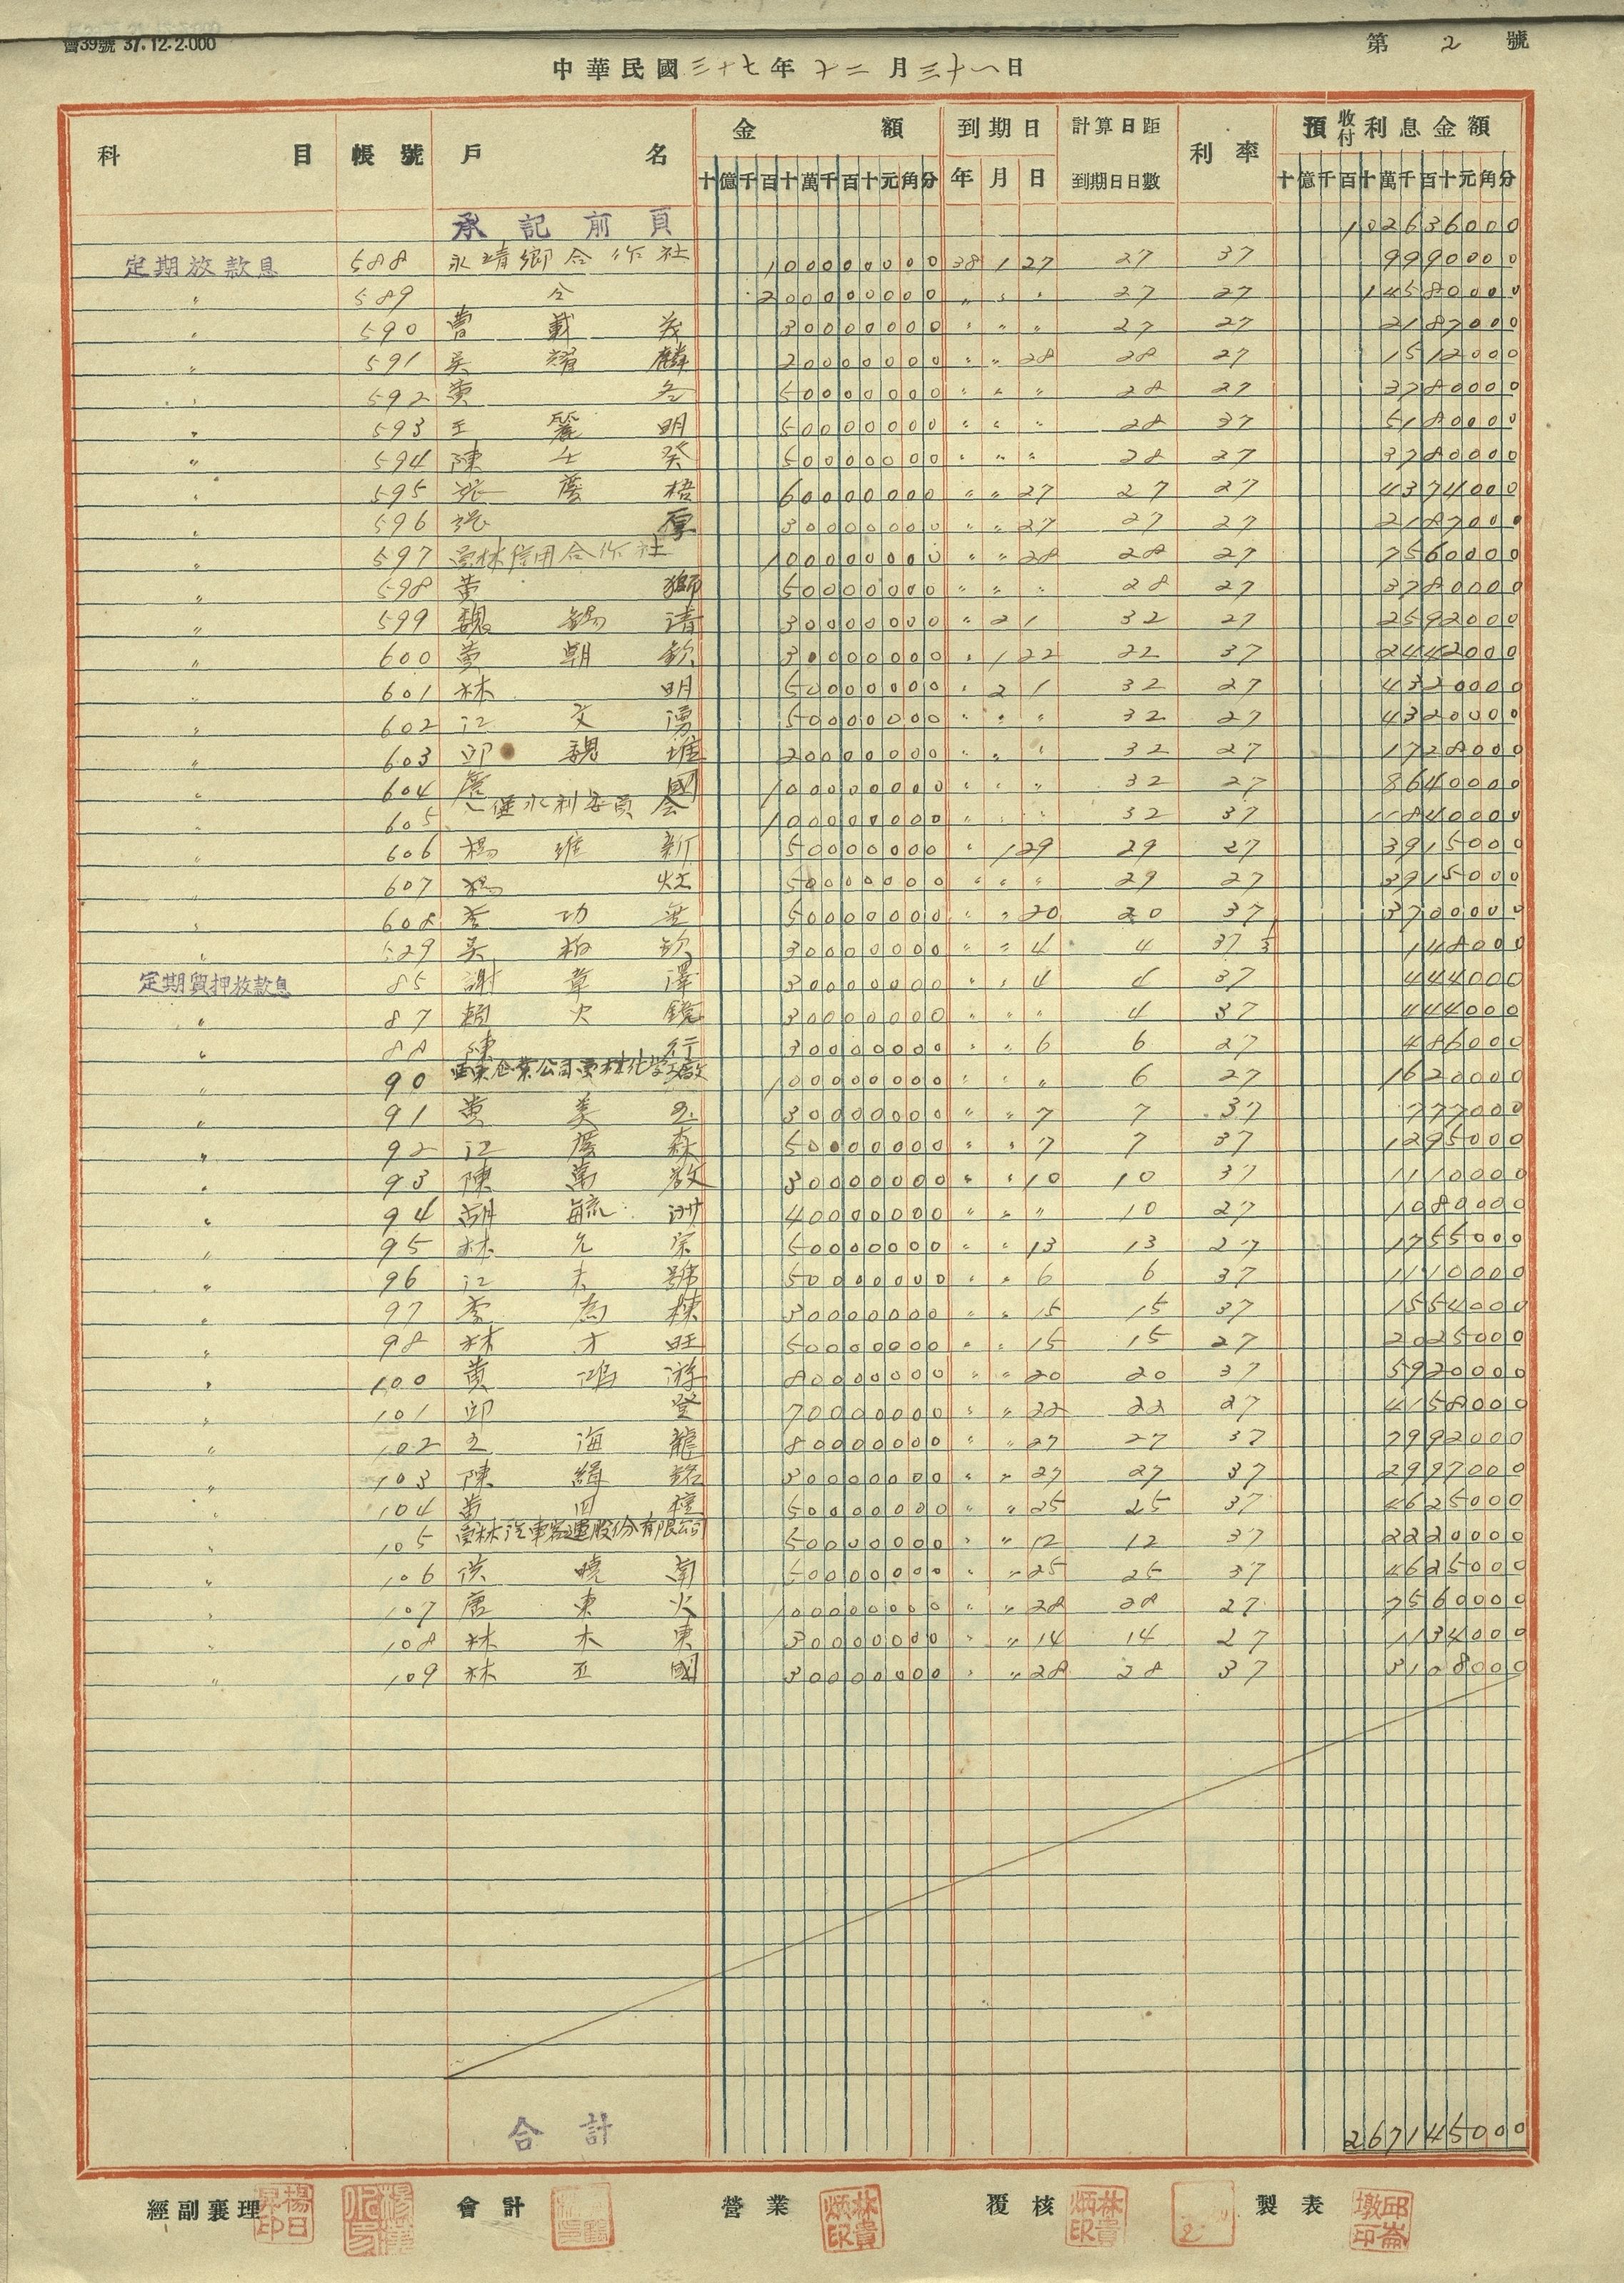 會39號 37.12.2.000
第 2 號
中華民國三十七年十二月三十一日
科目 帳號 戶名 金額 到期日 計算日距到期日日數 利率 預收付利息金額
十億千百十萬千百十元角分 年 月 日 十億千百十萬千百十元角分
承記前頁 102636000
定期放款息 588 永靖鄉合作社 1000000000 38 1 27 27 37 9990000
〃 589 仝 2000000000 〃 〃 〃 27 27 14580000
〃 590 曹 300000000 〃 〃 〃 27 27 2187000
〃 591 吳耀麟 200000000 〃 〃 28 28 27 1512000
〃 592 黄 500000000 〃 〃 〃 28 27 3780000
〃 593 王麗明 500000000 〃 〃 〃 28 37 5180000
〃 594 陳 癸 500000000 〃 〃 〃 28 27 3780000
〃 595 張慶梧 600000000 〃 〃 27 27 27 4374000
〃 596 張厚 300000000 〃 〃 27 27 27 2187000
〃 597 員林信用合作社 1000000000 〃 〃 28 28 27 7560000
〃 598 黄獅 500000000 〃 〃 〃 28 27 3780000
〃 599 魏錫清 300000000 〃 2 1 32 27 2592000
〃 600 黄朝欽 300000000 〃 1 22 22 37 2442000
〃 601 林明 500000000 〃 2 1 32 27 4320000
〃 602 江文湧 500000000 〃 〃 〃 32 27 4320000
〃 603 邱魏堆 200000000 〃 〃 〃 32 27 1728000
〃 604 詹國 1000000000 〃 〃 〃 32 27 8640000
〃 605 八堡水利委員会 1000000000 〃 〃 〃 32 37 11840000
〃 606 楊維新 500000000 〃 1 29 29 27 3915000
〃 607 楊 500000000 〃 〃 〃 29 27 3915000
〃 608 功 500000000 〃 〃 20 20 37 3700000
〃 529 吳 欽 300000000 〃 〃 4 4 37 148000
定期質押放款息 85 謝章澤 300000000 〃 〃 4 4 37 444000
〃 87 賴火鏡 300000000 〃 〃 〃 4 37 444000
〃 88 陳行 300000000 〃 〃 6 6 27 486000
〃 90 企業公司員林化學工廠 1000000000 〃 〃 〃 6 27 1620000
〃 91 黄美玉 300000000 〃 〃 7 7 37 777000
〃 92 江 森 500000000 〃 〃 7 7 37 1295000
〃 93 陳萬教 300000000 〃 〃 10 10 37 1110000
〃 94 胡毓沙 400000000 〃 〃 〃 10 27 1080000
〃 95 林允宗 500000000 〃 〃 13 13 27 1755000
〃 96 江未號 500000000 〃 〃 6 6 37 1110000
〃 97 李為棟 300000000 〃 〃 15 15 37 1554000
〃 98 林才旺 500000000 〃 〃 15 15 27 2025000
〃 100 黄鴻游 800000000 〃 〃 20 20 37 5920000
〃 101 邱登 700000000 〃 〃 22 22 27 4158000
〃 102 王海龍 800000000 〃 〃 27 27 37 7992000
〃 103 陳緝銘 300000000 〃 〃 27 27 37 2997000
〃 104 黄四 500000000 〃 〃 25 25 37 4625000
〃 105 員林汽車客運股份有限公司 500000000 〃 〃 12 12 37 2220000
〃 106 洪曉南 500000000 〃 〃 25 25 37 4625000
〃 107 唐東火 1000000000 〃 〃 28 28 27 7560000
〃 108 林木東 300000000 〃 〃 14 14 27 1134000
〃 109 林丕國 300000000 〃 〃 28 28 37 3108000
合計 267145000
經副襄理 會計 營業 林貴炳印 覆核 林貴炳印 製表 邱崙墩印